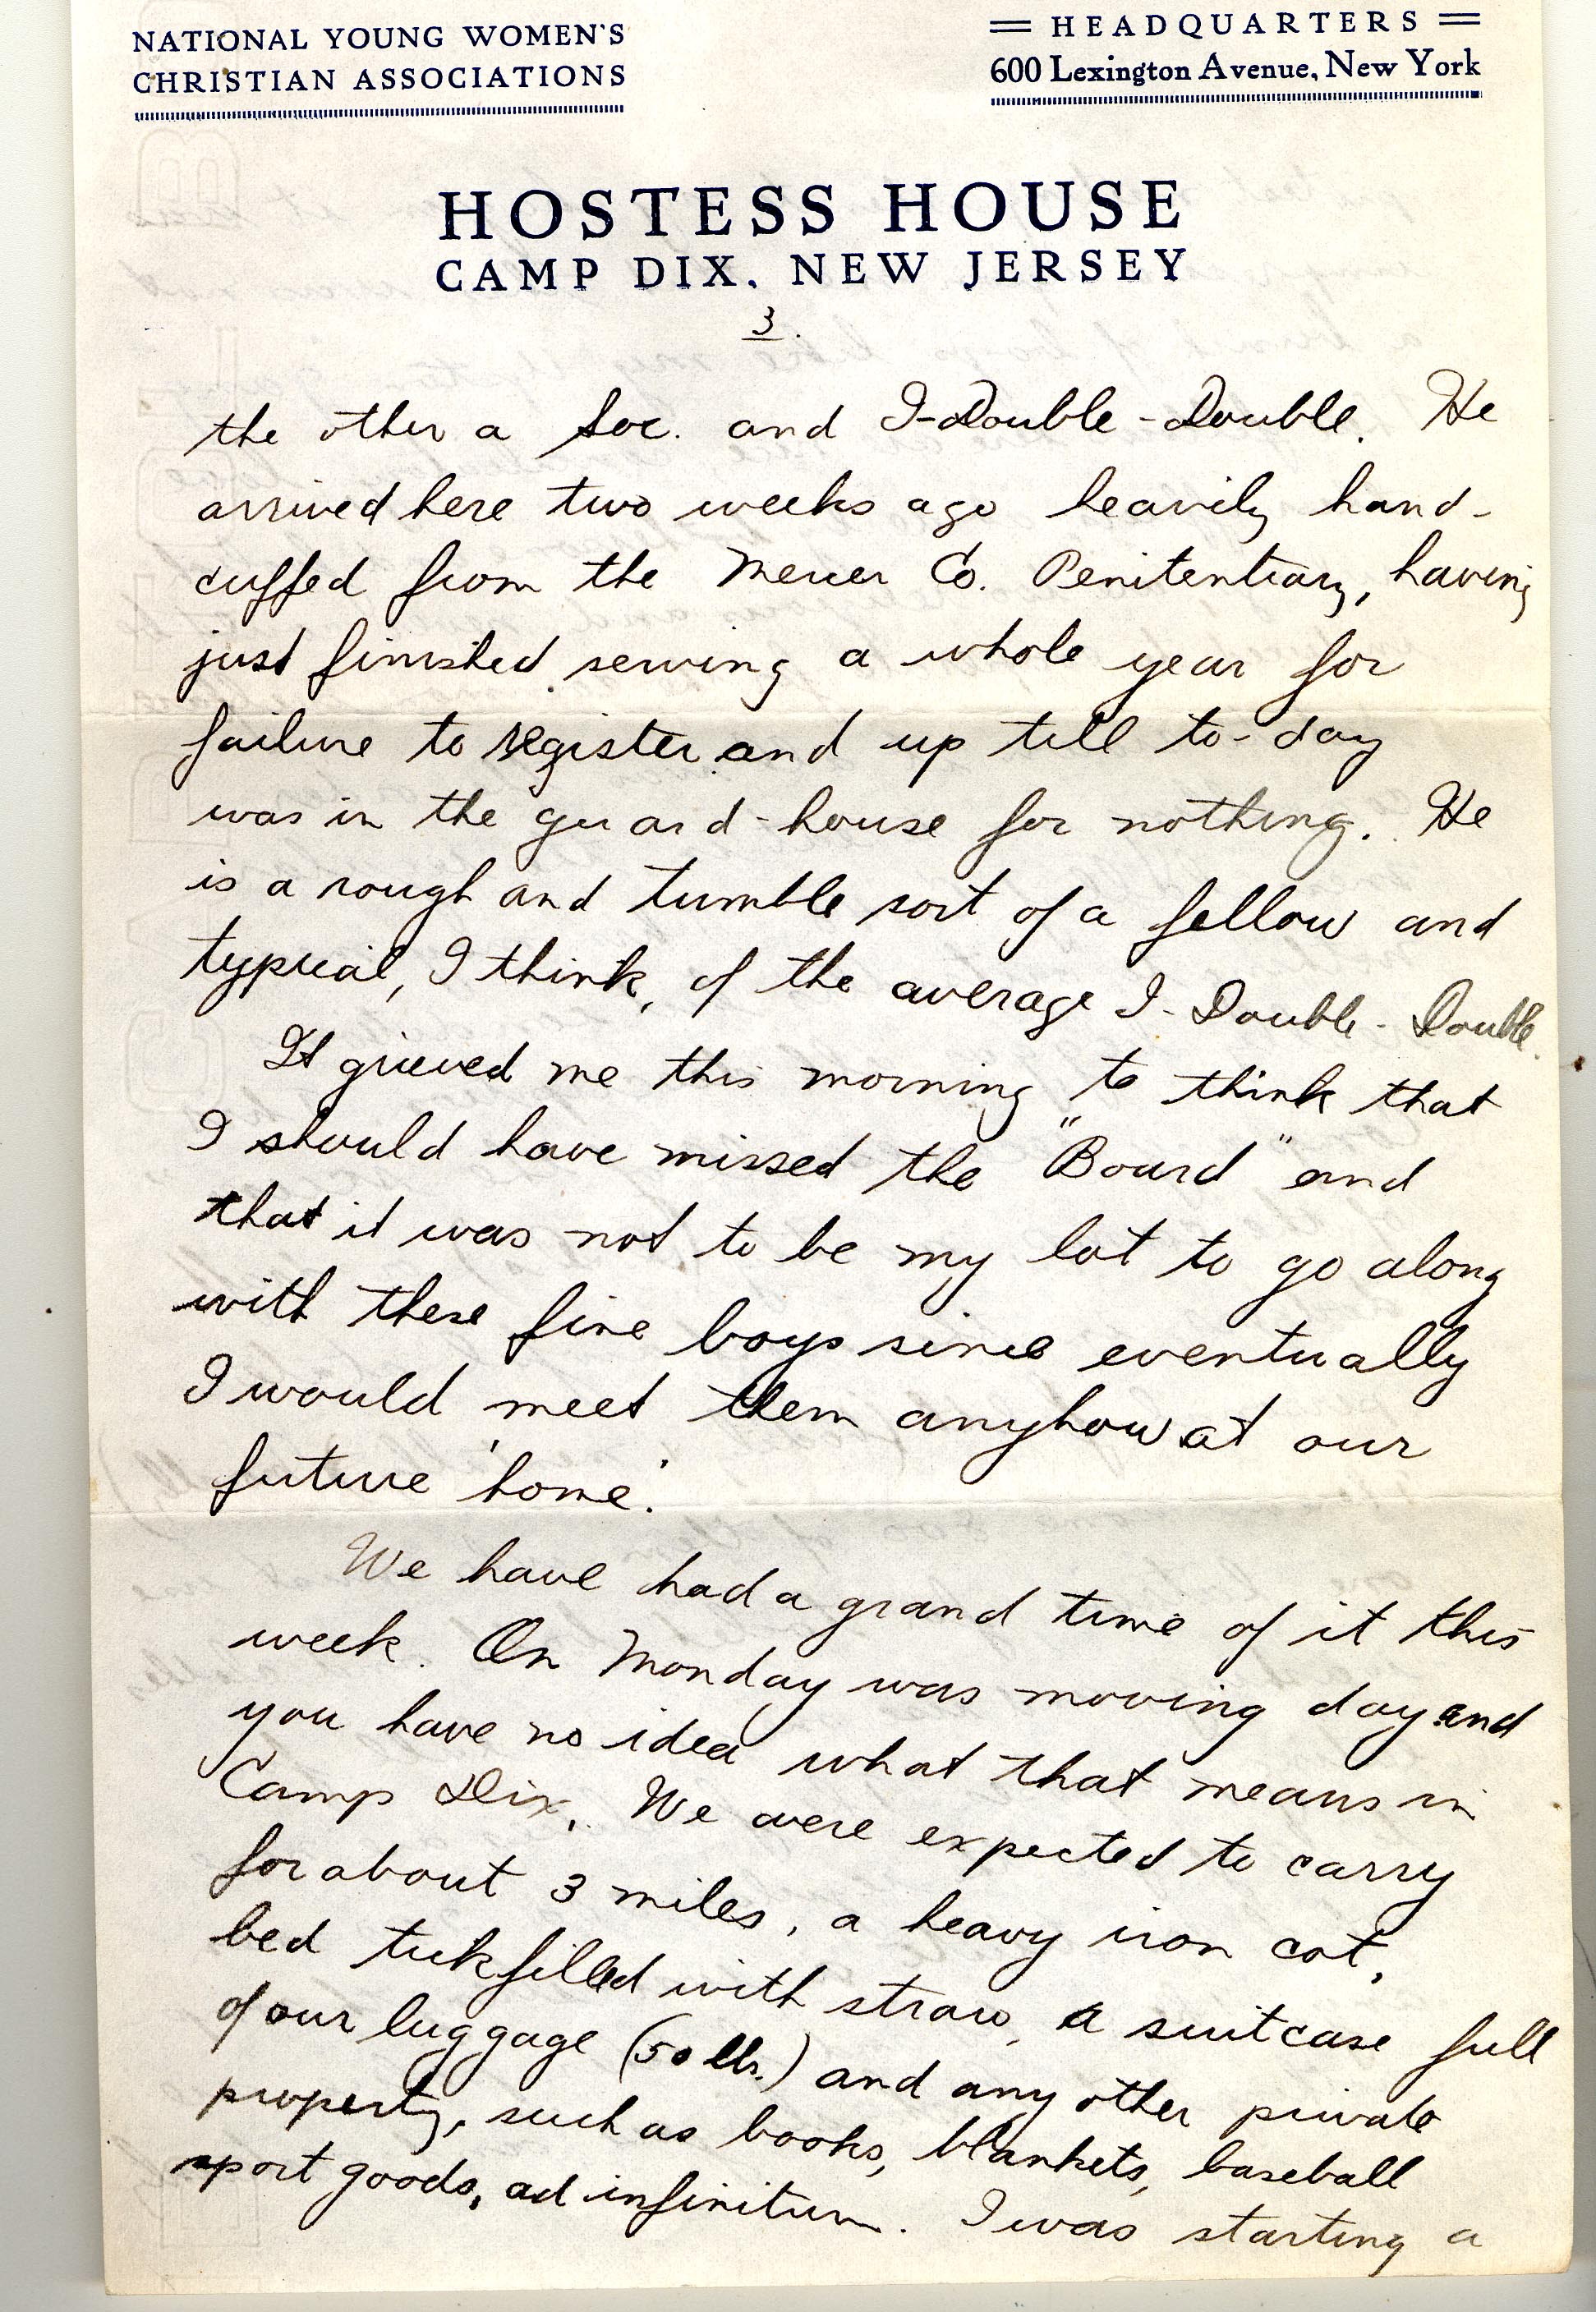 NATIONAL YOUNG WOMEN'S
CHRISTIAN ASSOCIATIONS
HEADQUARTERS
600 Lexington Avenue, New York
HOSTESS HOUSE
CAMP DIX, NEW JERSEY
3.
the other a Soc. and I-Double-Double. He
arrived here two weeks ago heavily hand-
cuffed from the Mercer Co. Penitentiary, having
just finished serving a whole year for
failure to register and up till to-day
was in the guard-house for nothing. He
is a rough and tumble sort of a fellow and
typical, I think, of the average I-Double-Double.
It grieved me this morning to think that
I should have missed the "Board" and
that it was not to be my lot to go along
with these fine boys since eventually
I would meet them anyhow at our
future 'home'.
We have had a grand time of it this
week. On Monday was moving day and
you have no idea what that means in
Camp Dix. We were expected to carry
for about 3 miles, a heavy iron cot,
bed tick filled with straw, a suitcase full
of our luggage (50 lbs.) and any other private
property, such as books, blankets, baseball
sport goods, ad infinitum. I was starting a